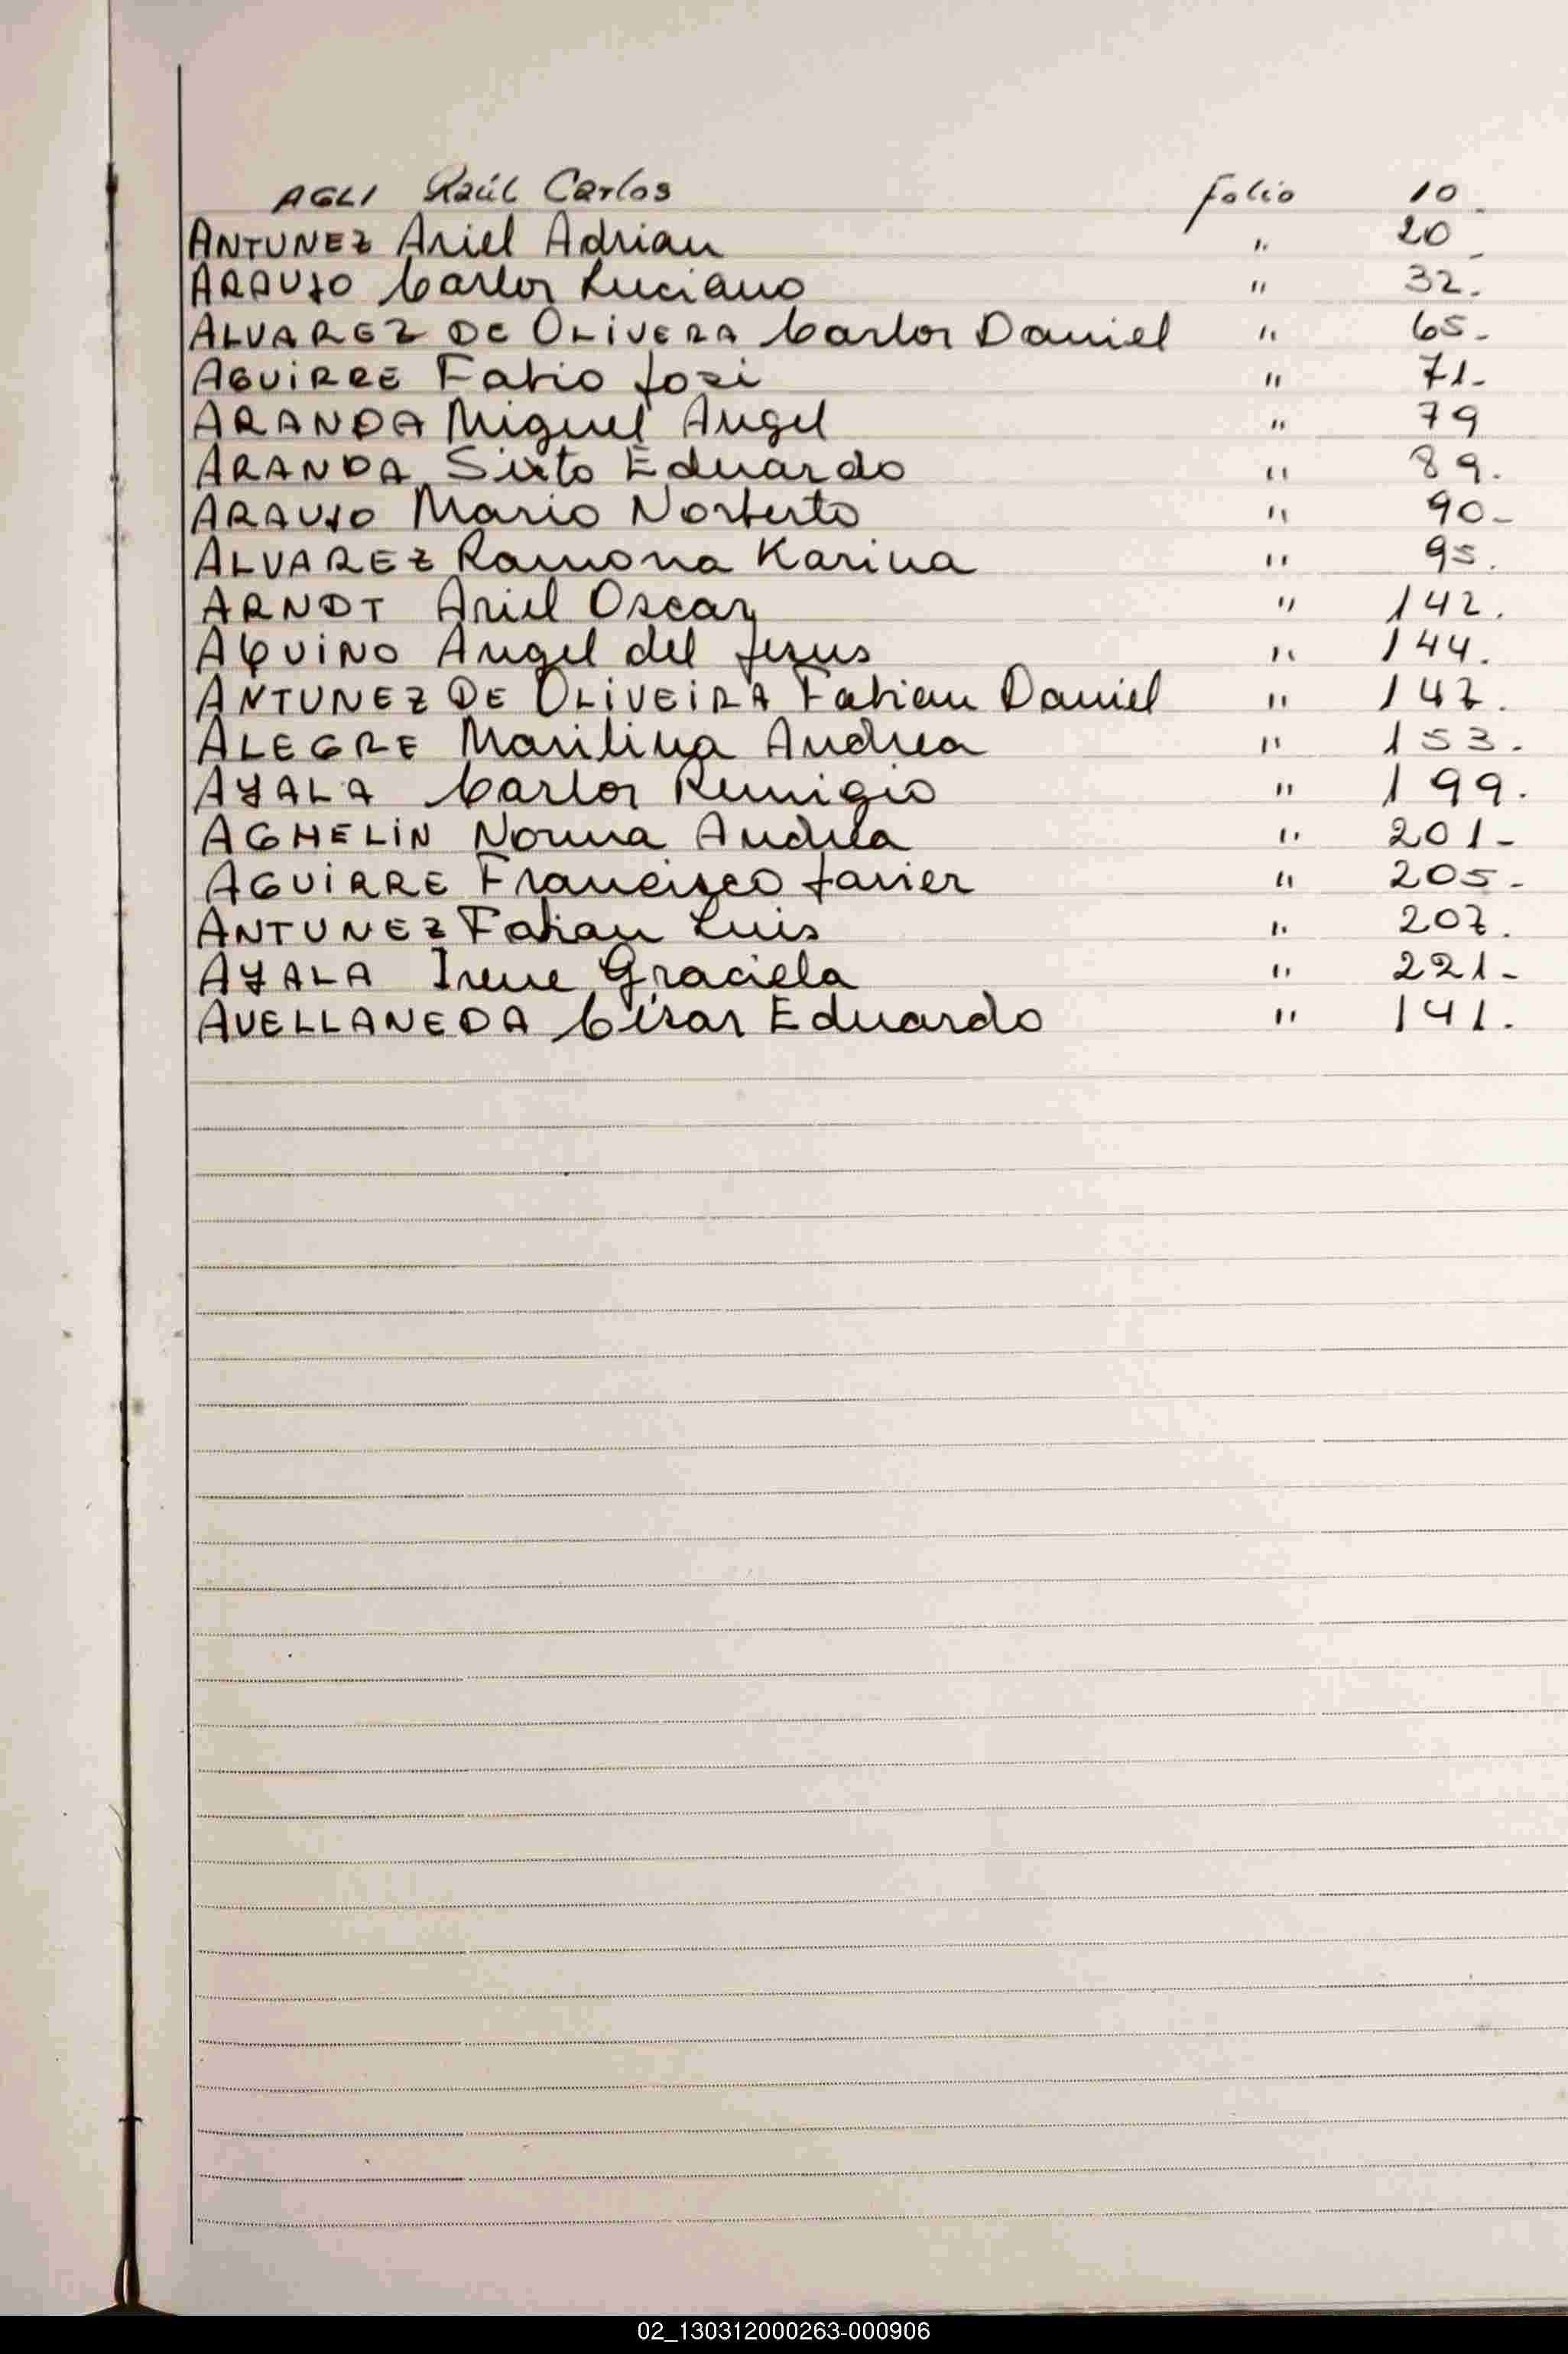 AGLI Raúl Carlos folio 10.
ANTUNEZ Ariel Adrian " 20-
ARAUJO Carlos Luciano " 32.
ALVAREZ DE OLIVERA Carlos Daniel " 65-
AGUIRRE Fabio José " 71-
ARANDA Miguel Angel " 79
ARANDA Sixto Eduardo " 89.
ARAUJO Mario Norberto " 90-
ALVAREZ Ramona Karina " 95.
ARNDT Ariel Oscar " 142.
AQUINO Angel del Jesus " 144.
ANTUNEZ DE OLIVEIRA Fabian Daniel " 147.
ALEGRE Marilina Andrea " 153.
AYALA Carlos Remigio " 199.
AGHELIN Norma Andrea " 201-
AGUIRRE Francisco Javier " 205-
ANTUNEZ Fabian Luis " 207.
AYALA Irene Graciela " 221-
AVELLANEDA César Eduardo " 141.
02_130312000263-000906